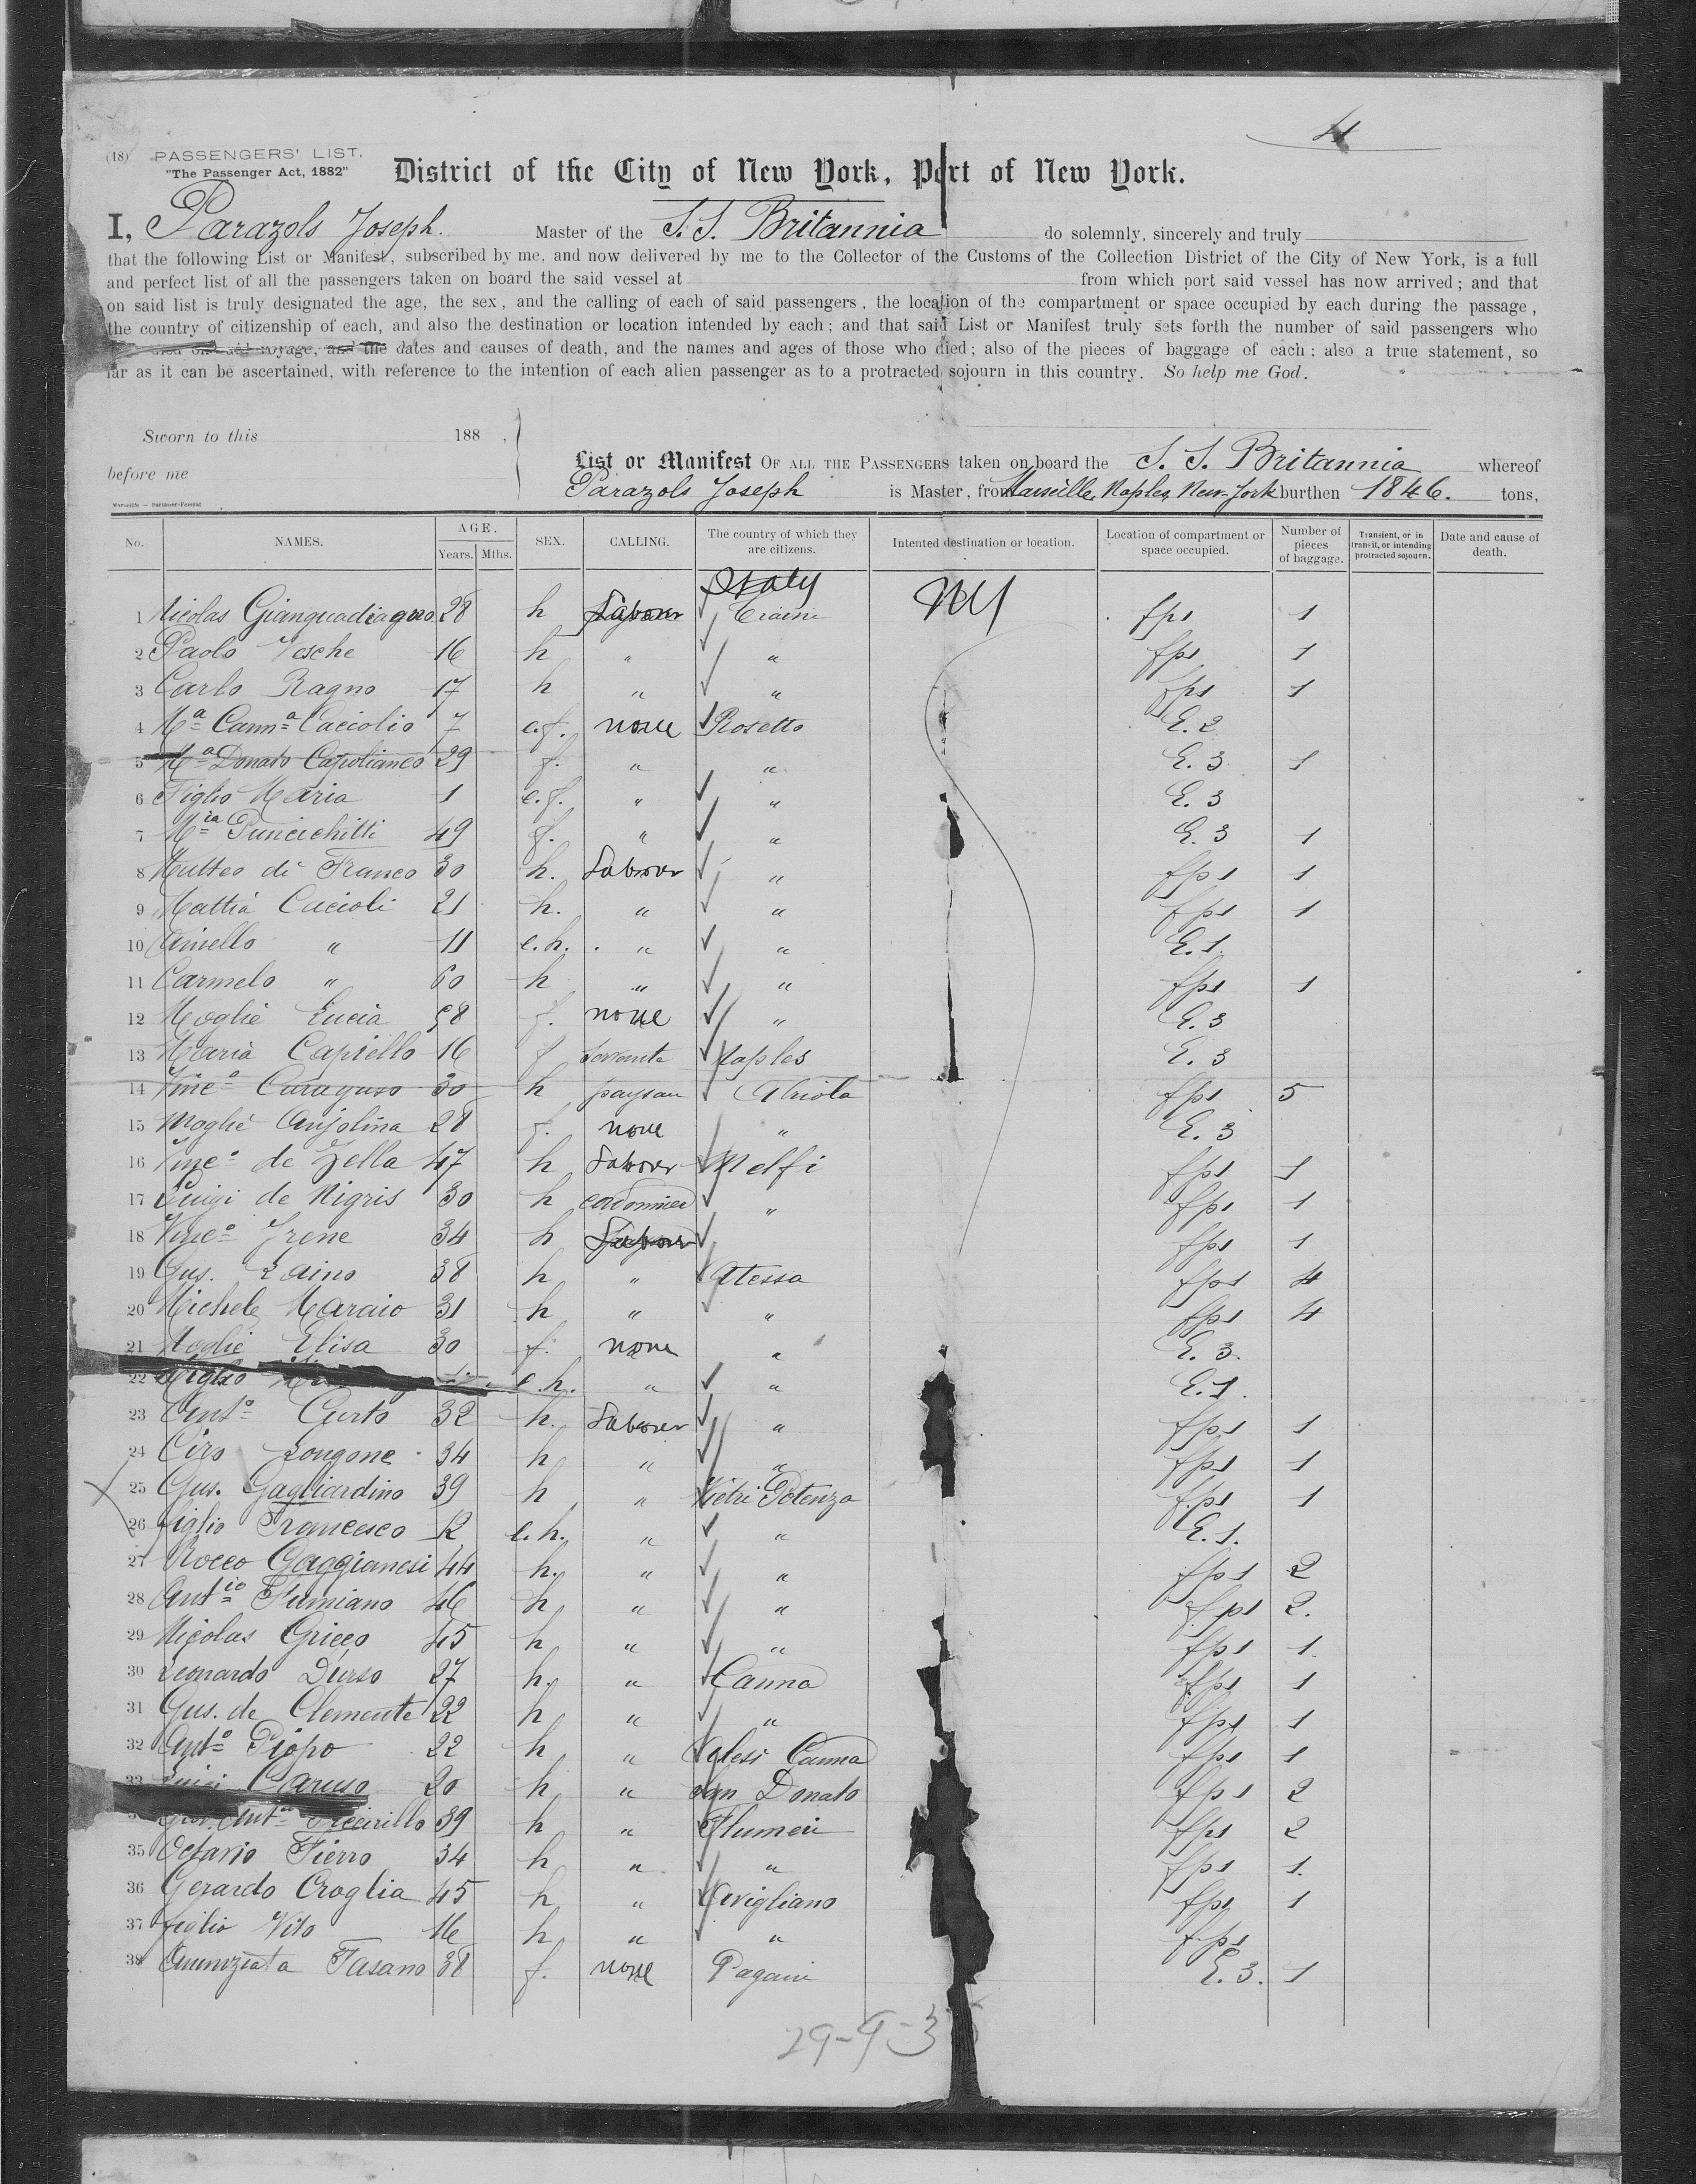 4
(18) PASSENGERS' LIST.
"The Passenger Act, 1882"
District of the City of New York, Port of New York.
I, Parazols Joseph. Master of the S.S. Britannia do solemnly, sincerely and truly
that the following List or Manifest, subscribed by me, and now delivered by me to the Collector of the Customs of the Collection District of the City of New York, is a full
and perfect list of all the passengers taken on board the said vessel at from which port said vessel has now arrived; and that
on said list is truly designated the age, the sex, and the calling of each of said passengers, the location of the compartment or space occupied by each during the passage,
the country of citizenship of each, and also the destination or location intended by each; and that said List or Manifest truly sets forth the number of said passengers who
voyage, and the dates and causes of death, and the names and ages of those who died; also of the pieces of baggage of each: also a true statement, so
far as it can be ascertained, with reference to the intention of each alien passenger as to a protracted sojourn in this country. So help me God.
Sworn to this 188 .
before me
List or Manifest OF ALL THE PASSENGERS taken on board the S. S. Britannia whereof
Parazols Joseph is Master, from Marseille, Naples, New-York burthen 1846. tons,
No. NAMES. AGE. Years. Mths. SEX. CALLING. The country of which they are citizens. Intented destination or location. Location of compartment or space occupied. Number of pieces of baggage. Transient, or in transit, or intending protracted sojourn. Date and cause of death.
Italy NY
1 Nicolas Gianguadiagno 28 h Labour fps 1
2 Paolo Vesche 16 h " " fps 1
3 Carlo Ragno 17 h " " fps 1
4 Ma Carma Caciolio 7 e.f. none Rosetto E. 2
5 Ma Donato Capolianco 29 f. " " E. 3 1
6 Figlio Maria 1 e.f. " " E. 3
7 Mria Puncichitti 49 f. " " E. 3 1
8 Matteo di Franco 30 h. Labour " fps 1
9 Mattia Cacioli 21 h. " " fps 1
10 Aniello " 11 e.h. " " E. 1.
11 Carmelo " 60 h " " fps 1
12 Moglie Lucia 58 f. none " E. 3
13 Maria Capiello 16 f Servante Naples E. 3
14 Vinco Caraguso 30 h paysan fps 5
15 Moglie Anjolina 28 f. none " E. 3
16 Vinco de Zella 47 h Labour Melfi fps 1
17 Luigi de Nigris 30 h " fps 1
18 Vinco Irene 34 h Labour fps 1
19 Gus. Laino 38 h " Atessa fps 4
20 Michele Maraio 31 h " " fps 4
21 Moglie Elisa 30 f. none " E. 3.
22 Figlio e.h. " " E. 1.
23 Anto Curto 32 h. Labour " fps 1
24 Ciro Longone 34 h " " fps 1
25 Gus. Gagliardino 39 h " Vietri Potenza fps 1
26 figlio Francesco 12 e.h. " " E. 1.
27 Rocco Gaggianesi 44 h. " " fps 2
28 Antio Fumiano 46 h " " fps 2.
29 Nicolas Grieco 45 h " " fps 1.
30 Leonardo Durso 27 h. " Canna fps 1
31 Gus. de Clemente 22 h " " fps 1
32 Anto Piopo 22 h " Canna fps 1
33 Luigi Caruso 20 h " San Donato fps 2
Anto Piccirillo 39 h " Flumeri fps 2
35 Octavio Fierro 34 h " " fps 1.
36 Gerardo Croglia 45 h " Avigliano fps 1
37 figlio Vito 16 h " " fps
38 Annunziata Fasano 38 f. none Pagani E. 3. 1
29-9-3